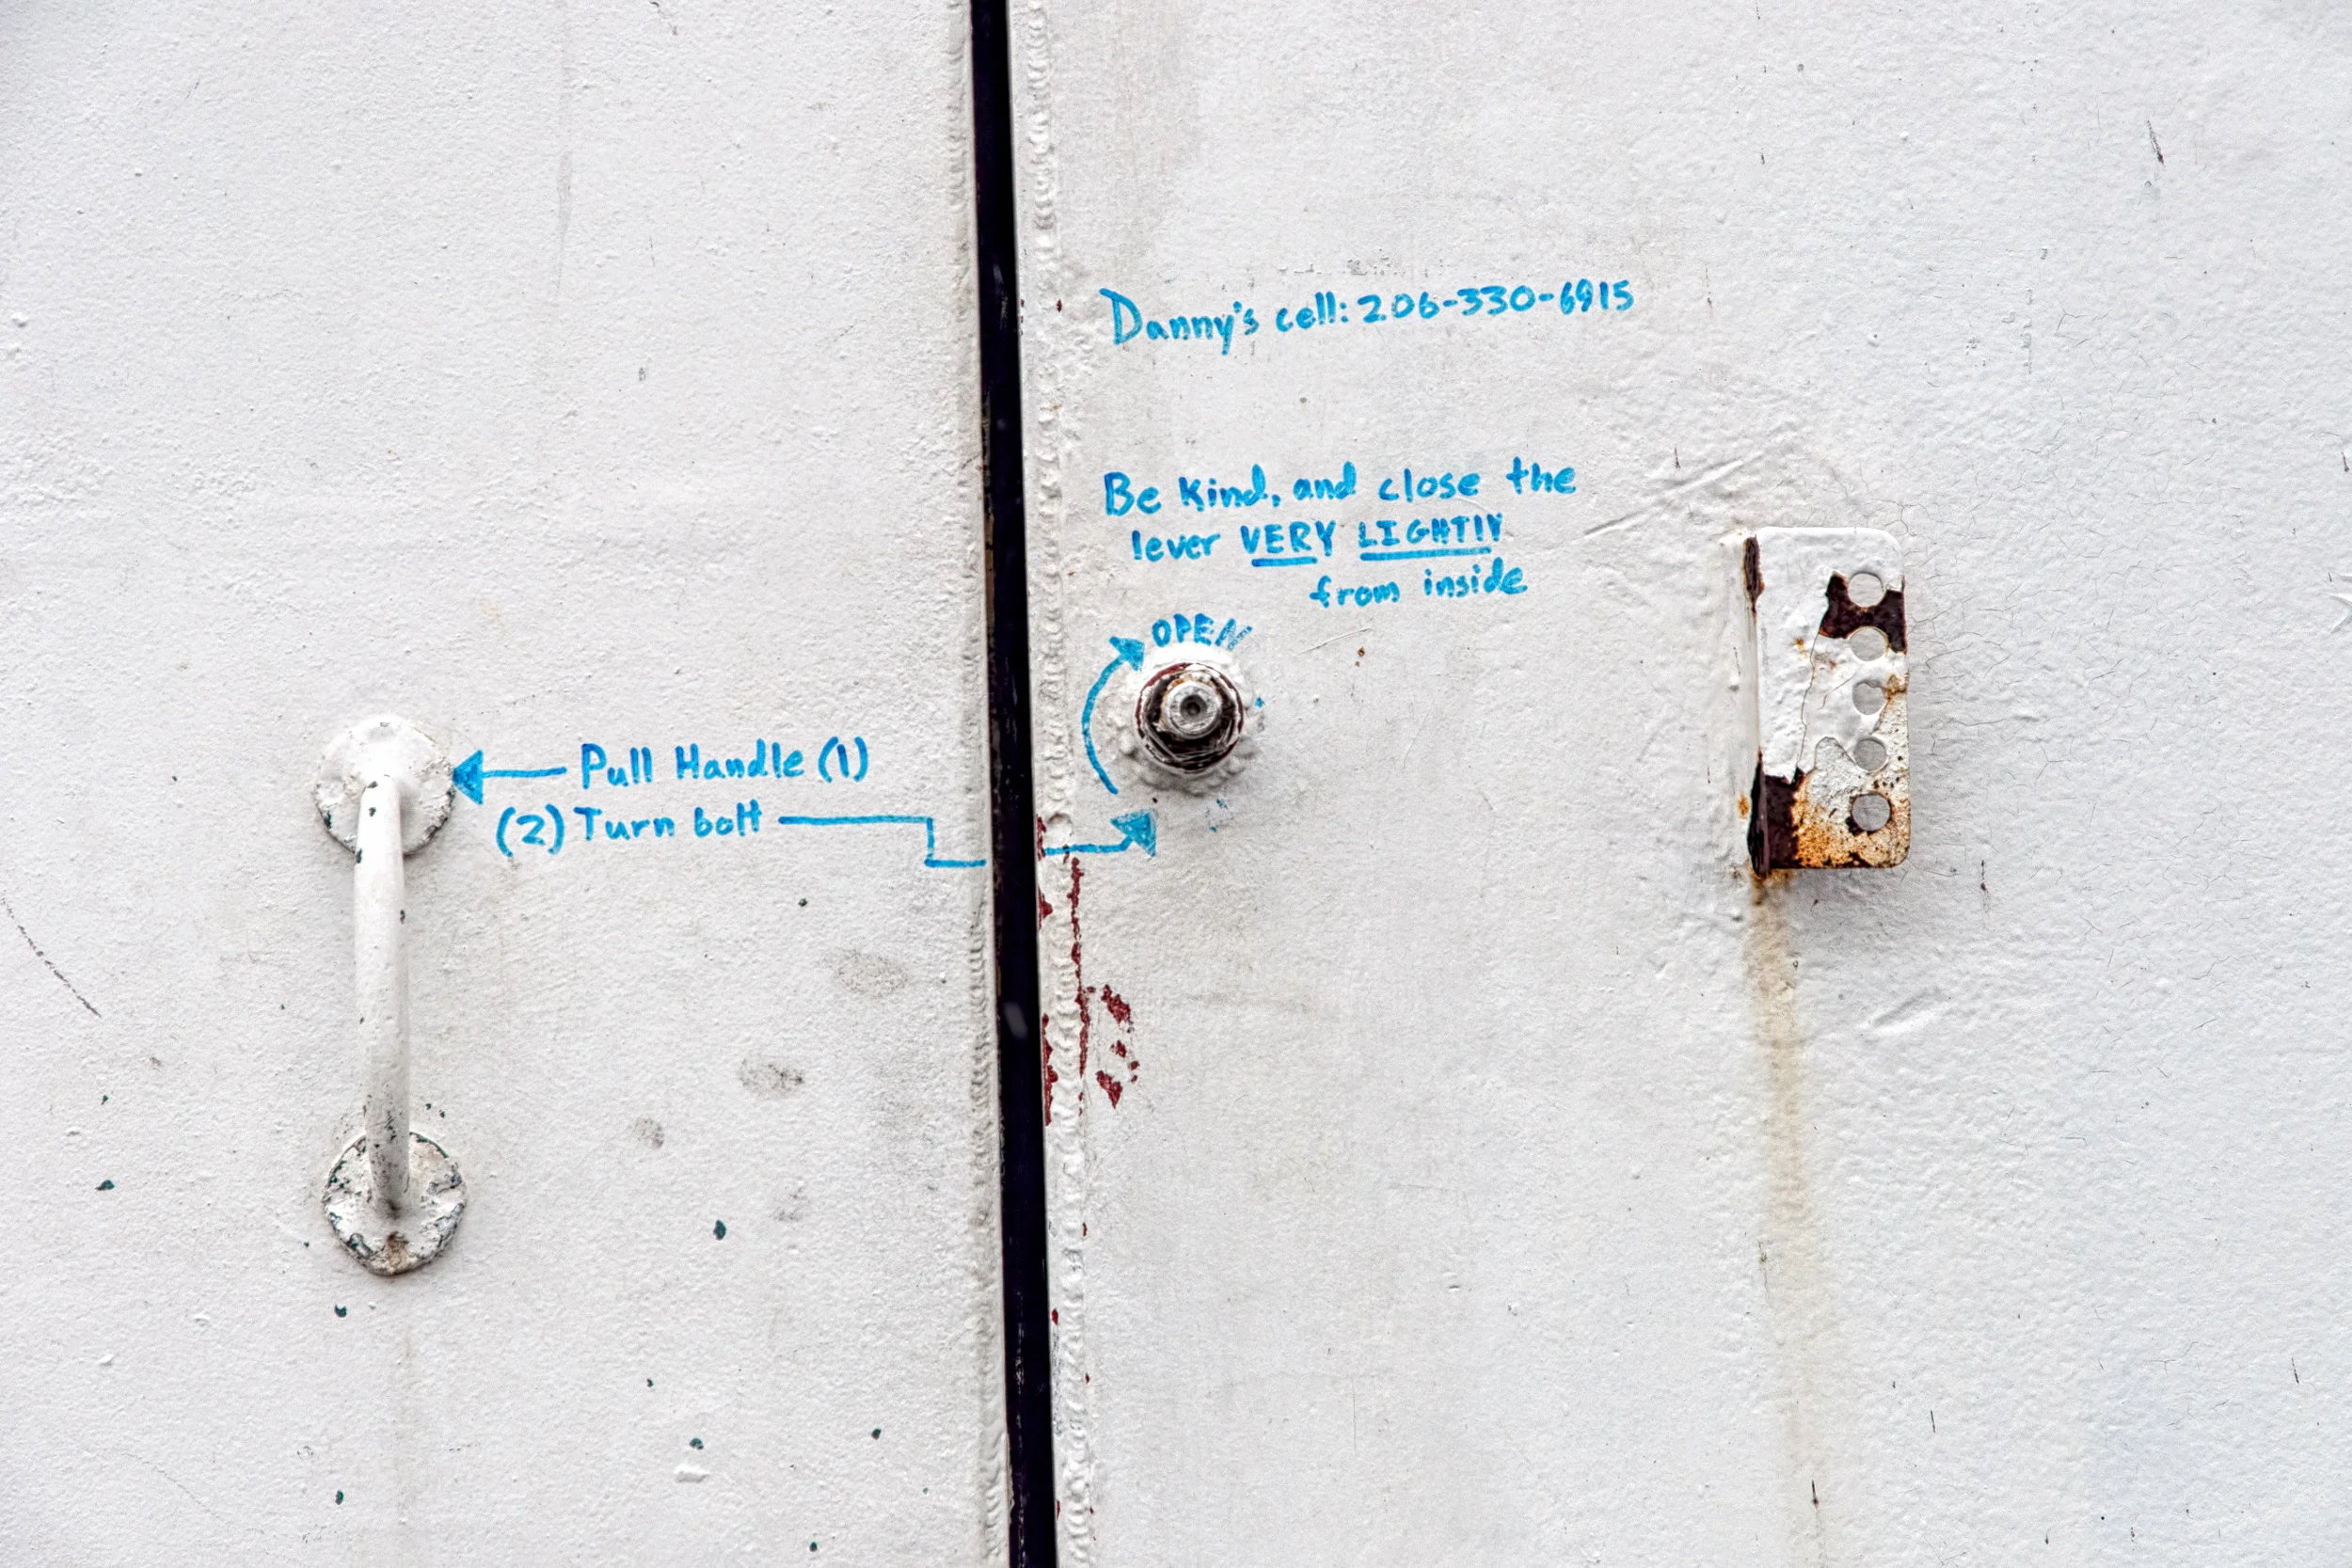 Danny's cell: 206-330-6915
Be kind, and close the
lever VERY LIGHTLY
from inside
OPEN
Pull Handle (1)
(2) Turn bolt